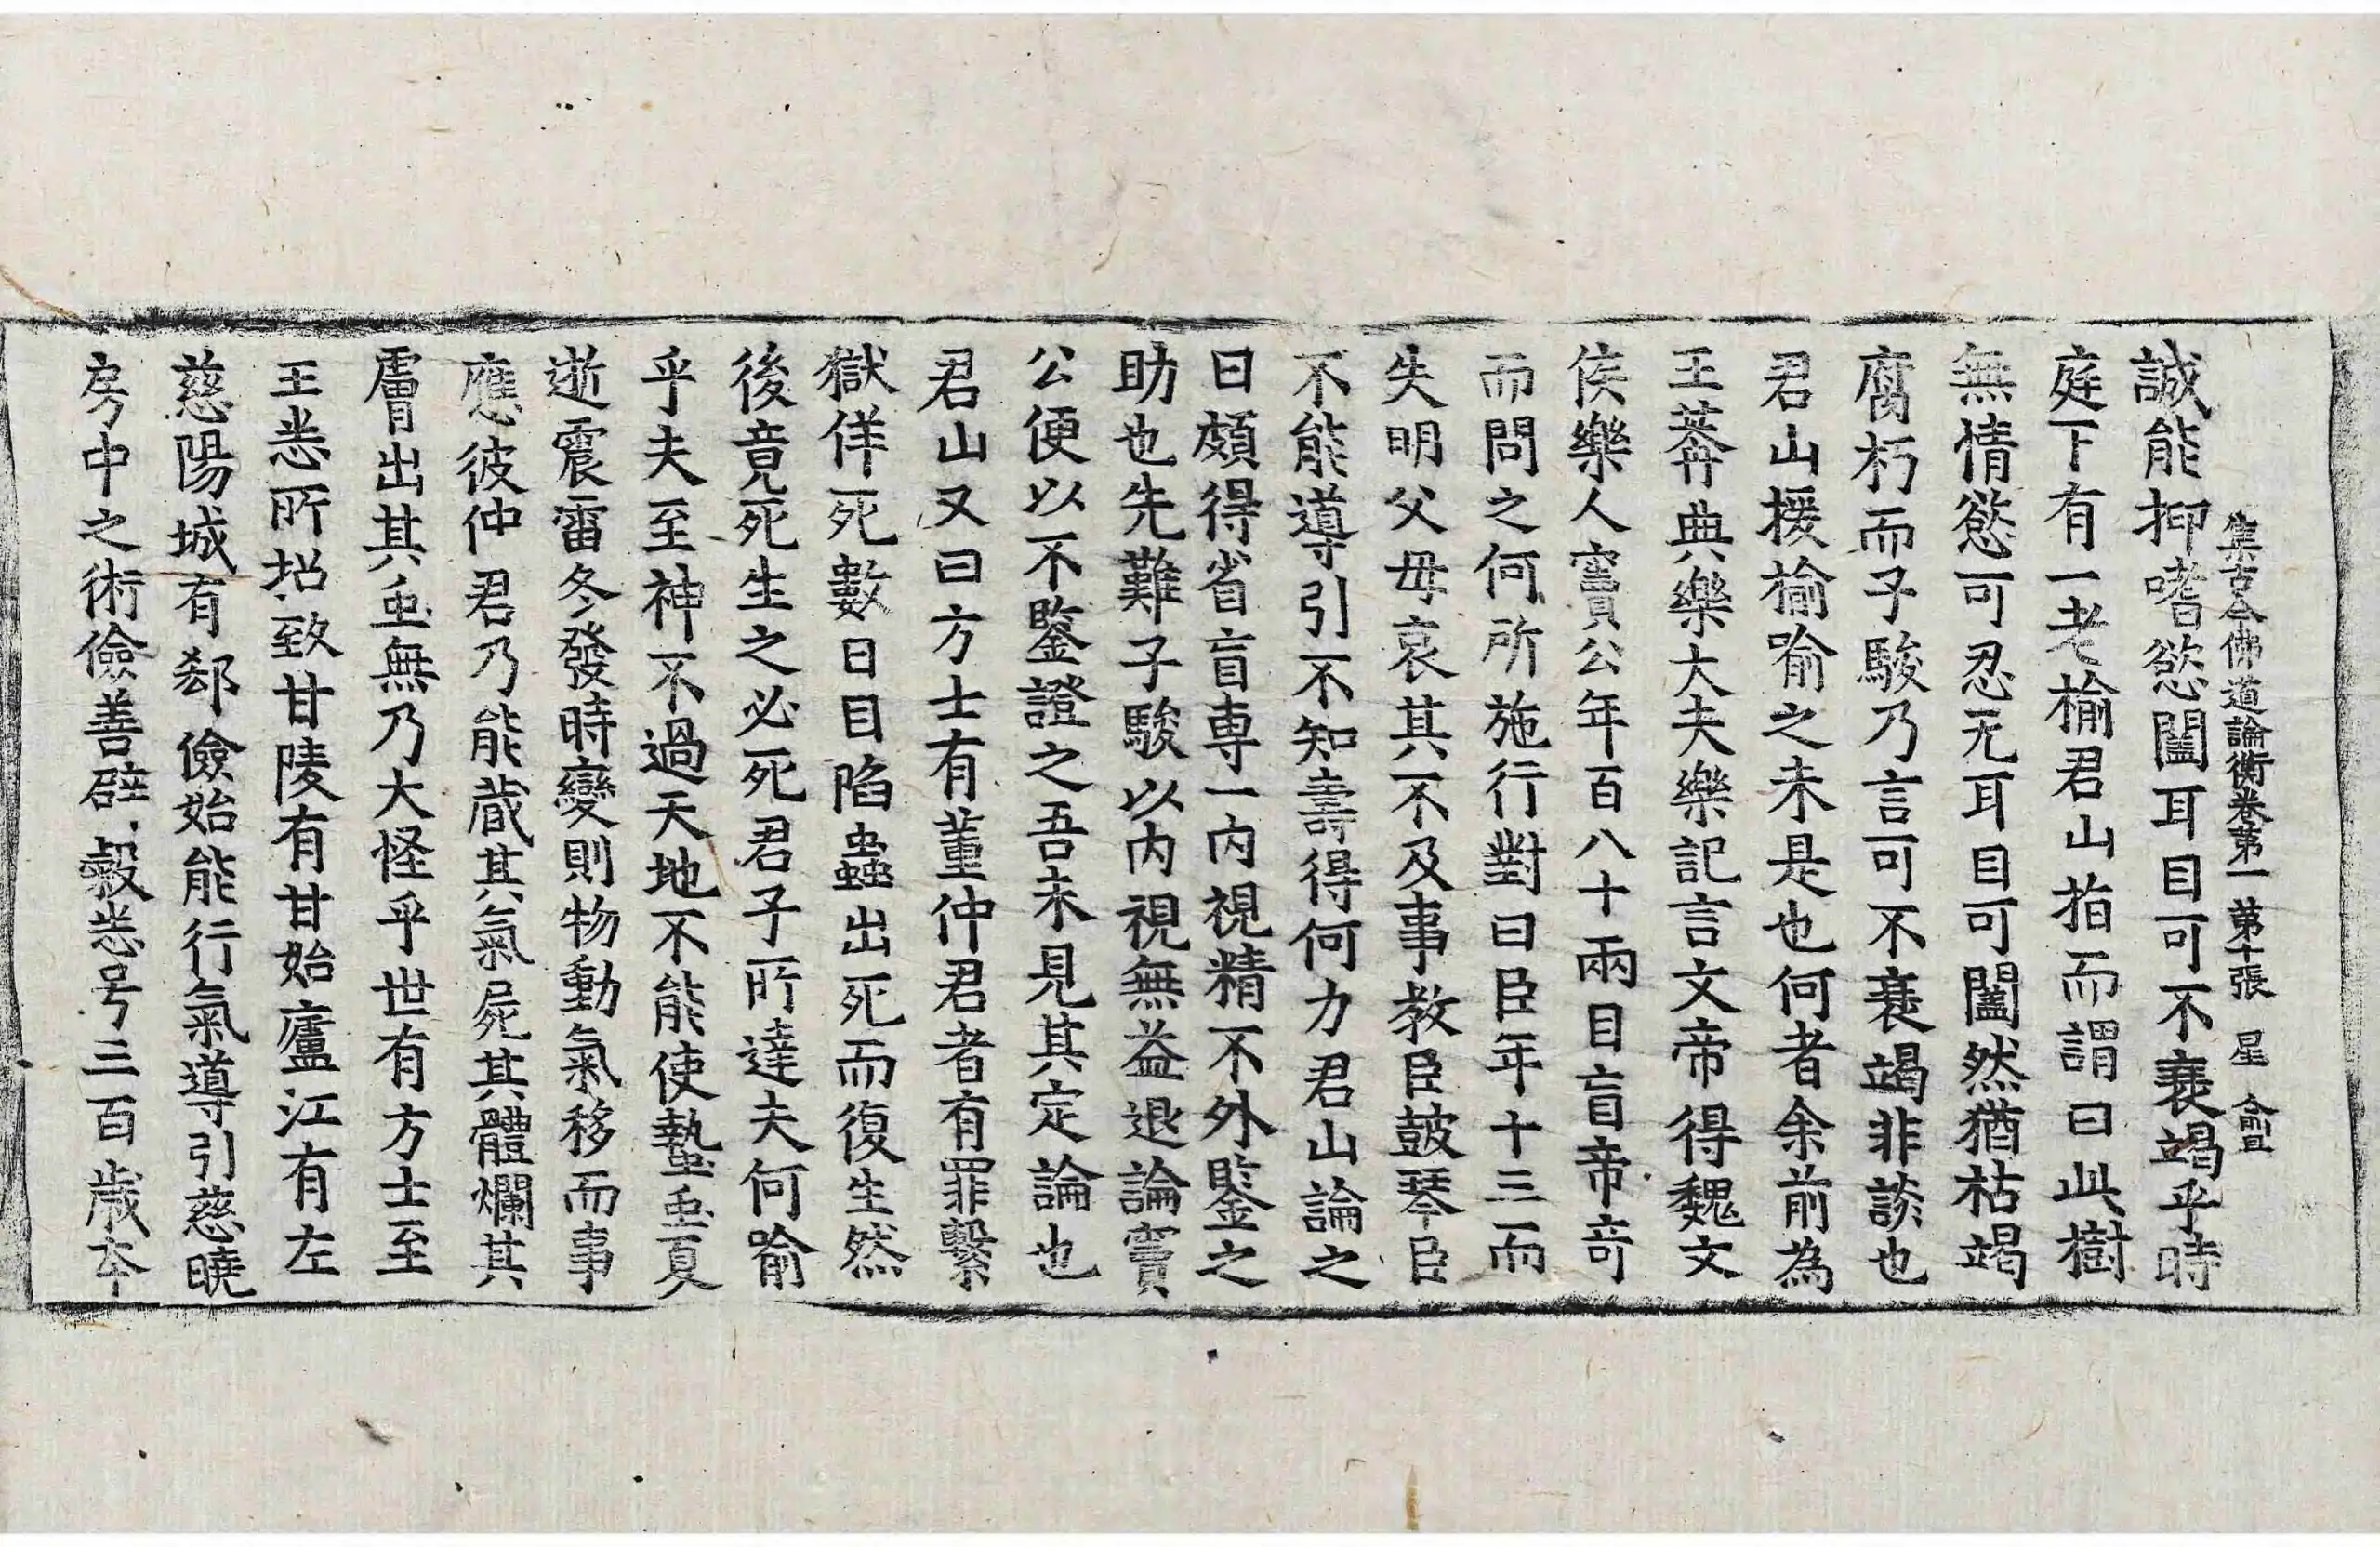 集古今佛道論衡卷第一 第十張 星
誠能抑嗜慾闔耳目可不衰竭乎時
庭下有一老榆君山指而謂曰此樹
無情慾可忍无耳目可闔然猶枯竭
腐朽而子駿乃言可不衰竭非談也
君山援榆喻之未是也何者余前為
王莽典樂大夫樂記言文帝得魏文
侯樂人竇公年百八十兩目盲帝奇
而問之何所施行對曰臣年十三而
失明父母哀其不及事教臣鼓琴臣
不能導引不知壽得何力君山論之
曰頗得省盲專一内視精不外鑒之
助也先難子駿以内視無益退論竇
公便以不鑒證之吾未見其定論也
君山又曰方士有董仲君者有罪繫
獄佯死數日目陷蟲出死而復生然
後竟死生之必死君子所達夫何喻
乎夫至神不過天地不能使蟄虫夏
逝震雷冬發時變則物動氣移而事
應彼仲君乃能藏其氣屍其體爛其
膚出其虫無乃大怪乎世有方士至
王悉所招致甘陵有甘始廬江有左
慈陽城有郄儉始能行氣導引慈曉
房中之術儉善辟穀悉号三百歲本